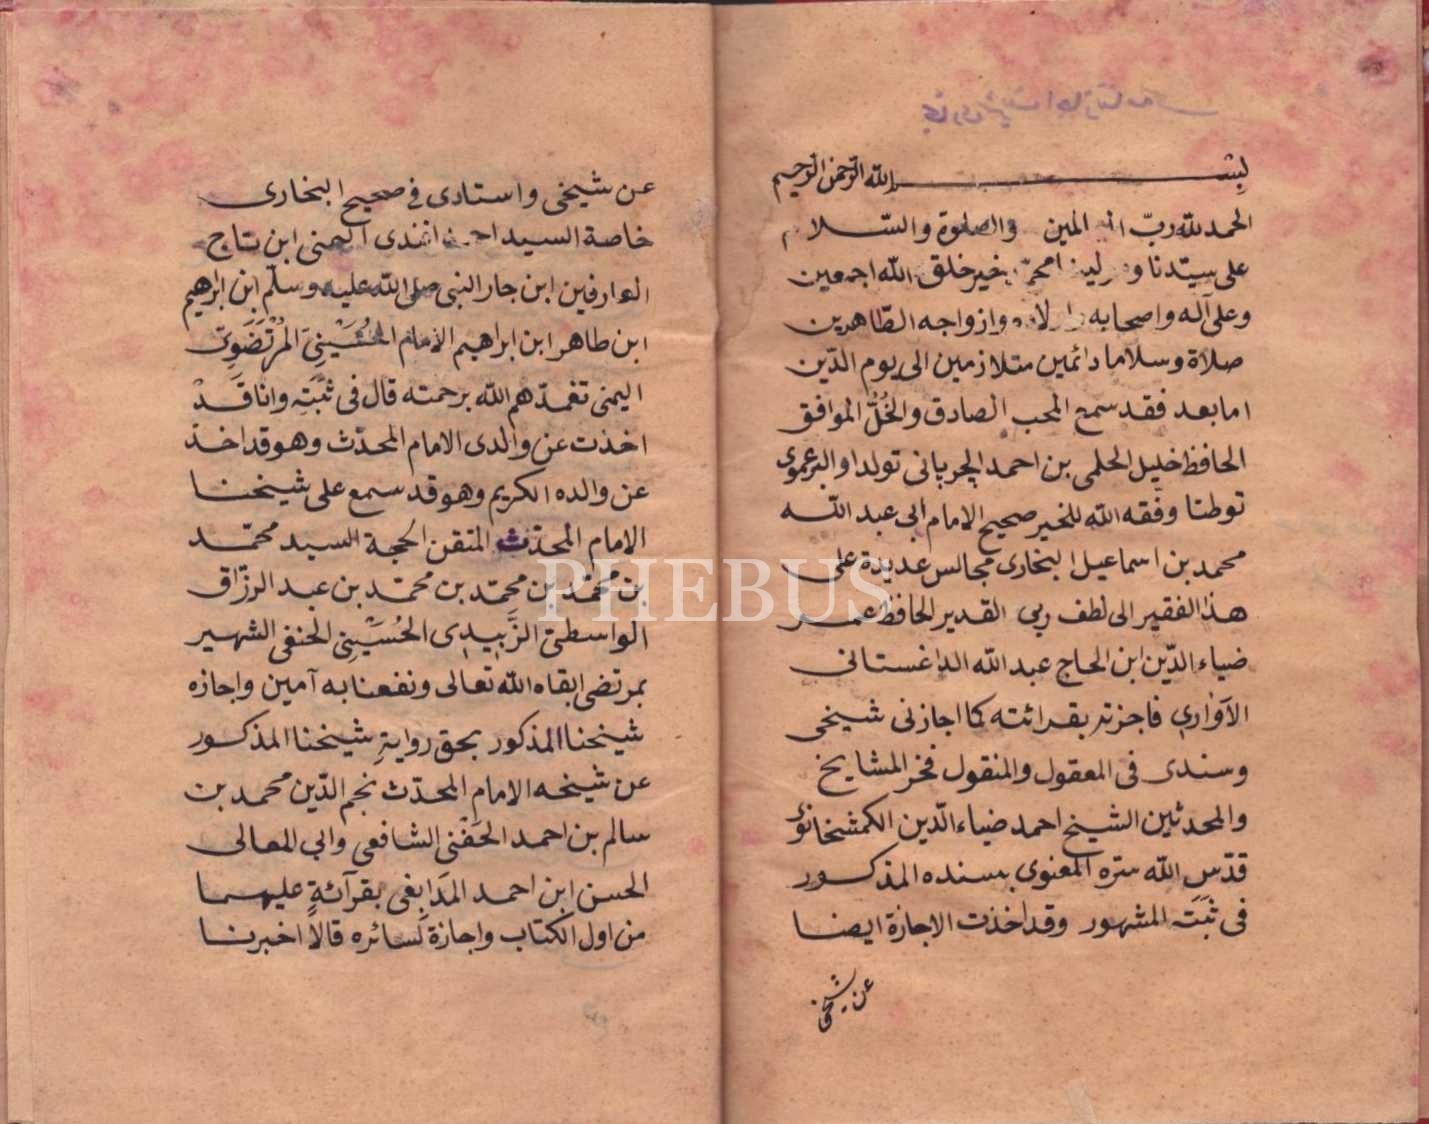 بخاری شریف اجازتنامه
بسم الله الرحمن الرحيم
الحمد لله ربّ العالمين والصلوة والسّلام
على سيّدنا محمّد خير خلق الله اجمعين
وعلى آله واصحابه وازواجه الطّاهرين
صلاة وسلاما دائمين متلازمين الى يوم الدّين
اما بعد فقد سمع المحب الصادق والخُلُّ الموافق
الحافظ خليل الحلمى بن احمد تولدا
توطنا وفّقه الله للخير صحيح الامام ابى عبد الله
محمد بن اسماعيل البخارى مجالس عديدة على
هذا الفقير الى لطف ربى القدير الحافظ عمر
ضياء الدّين ابن الحاج عبد الله الداغستانى
الآوارى فاجزته بقرائته كما اجازنى شيخى
وسندى فى المعقول والمنقول فخر المشايخ
والمحدثين الشيخ احمد ضياء الدّين الكمشخانوى
قدّس الله سرّه المعنوى بسنده المذكور
فى ثَبَتَه المشهور وقد اخذت الاجازة ايضا
عن شيخى
عن شيخى واستادى فى صحيح البخارى
خاصة السيد احمد افندى ابن بتاج
العارفين ابن جار النبى صلى الله عليه وسلّم ابن ابرهيم
ابن طاهر ابن ابراهيم الامام الحُسَيْنِى المُرْتَضَوِىّ
اليمنى تغمدّهم الله برحمته قال فى ثَبَتِه وانا قَدْ
اخذت عن والدى الامام المحدّث وهو قد اخذ
عن والده الكريم وهو قد سمع على شيخنا
الامام المحدّث المتقن الحجة السيد محمّد
بن محمّد بن محمّد بن محمّد بن عبد الرزّاق
الواسطى الزَّبِيدِى الحُسَيْنِى الحنفى الشهير
بمرتضى ابقاه الله تعالى ونفعنا به آمين واجازه
شيخنا المذكور بحق روايةِ شيخنا المذكور
عن شيخه الامام المحدّث نجم الدّين محمد بن
سالم بن احمد الحَفْنى الشافعى وابى المعالى
الحسن ابن احمد المَدَابِغى بقرآئةٍ عليهما
من اول الكتاب واجازة لسائره قالاً اخبرنا
PHEBUS